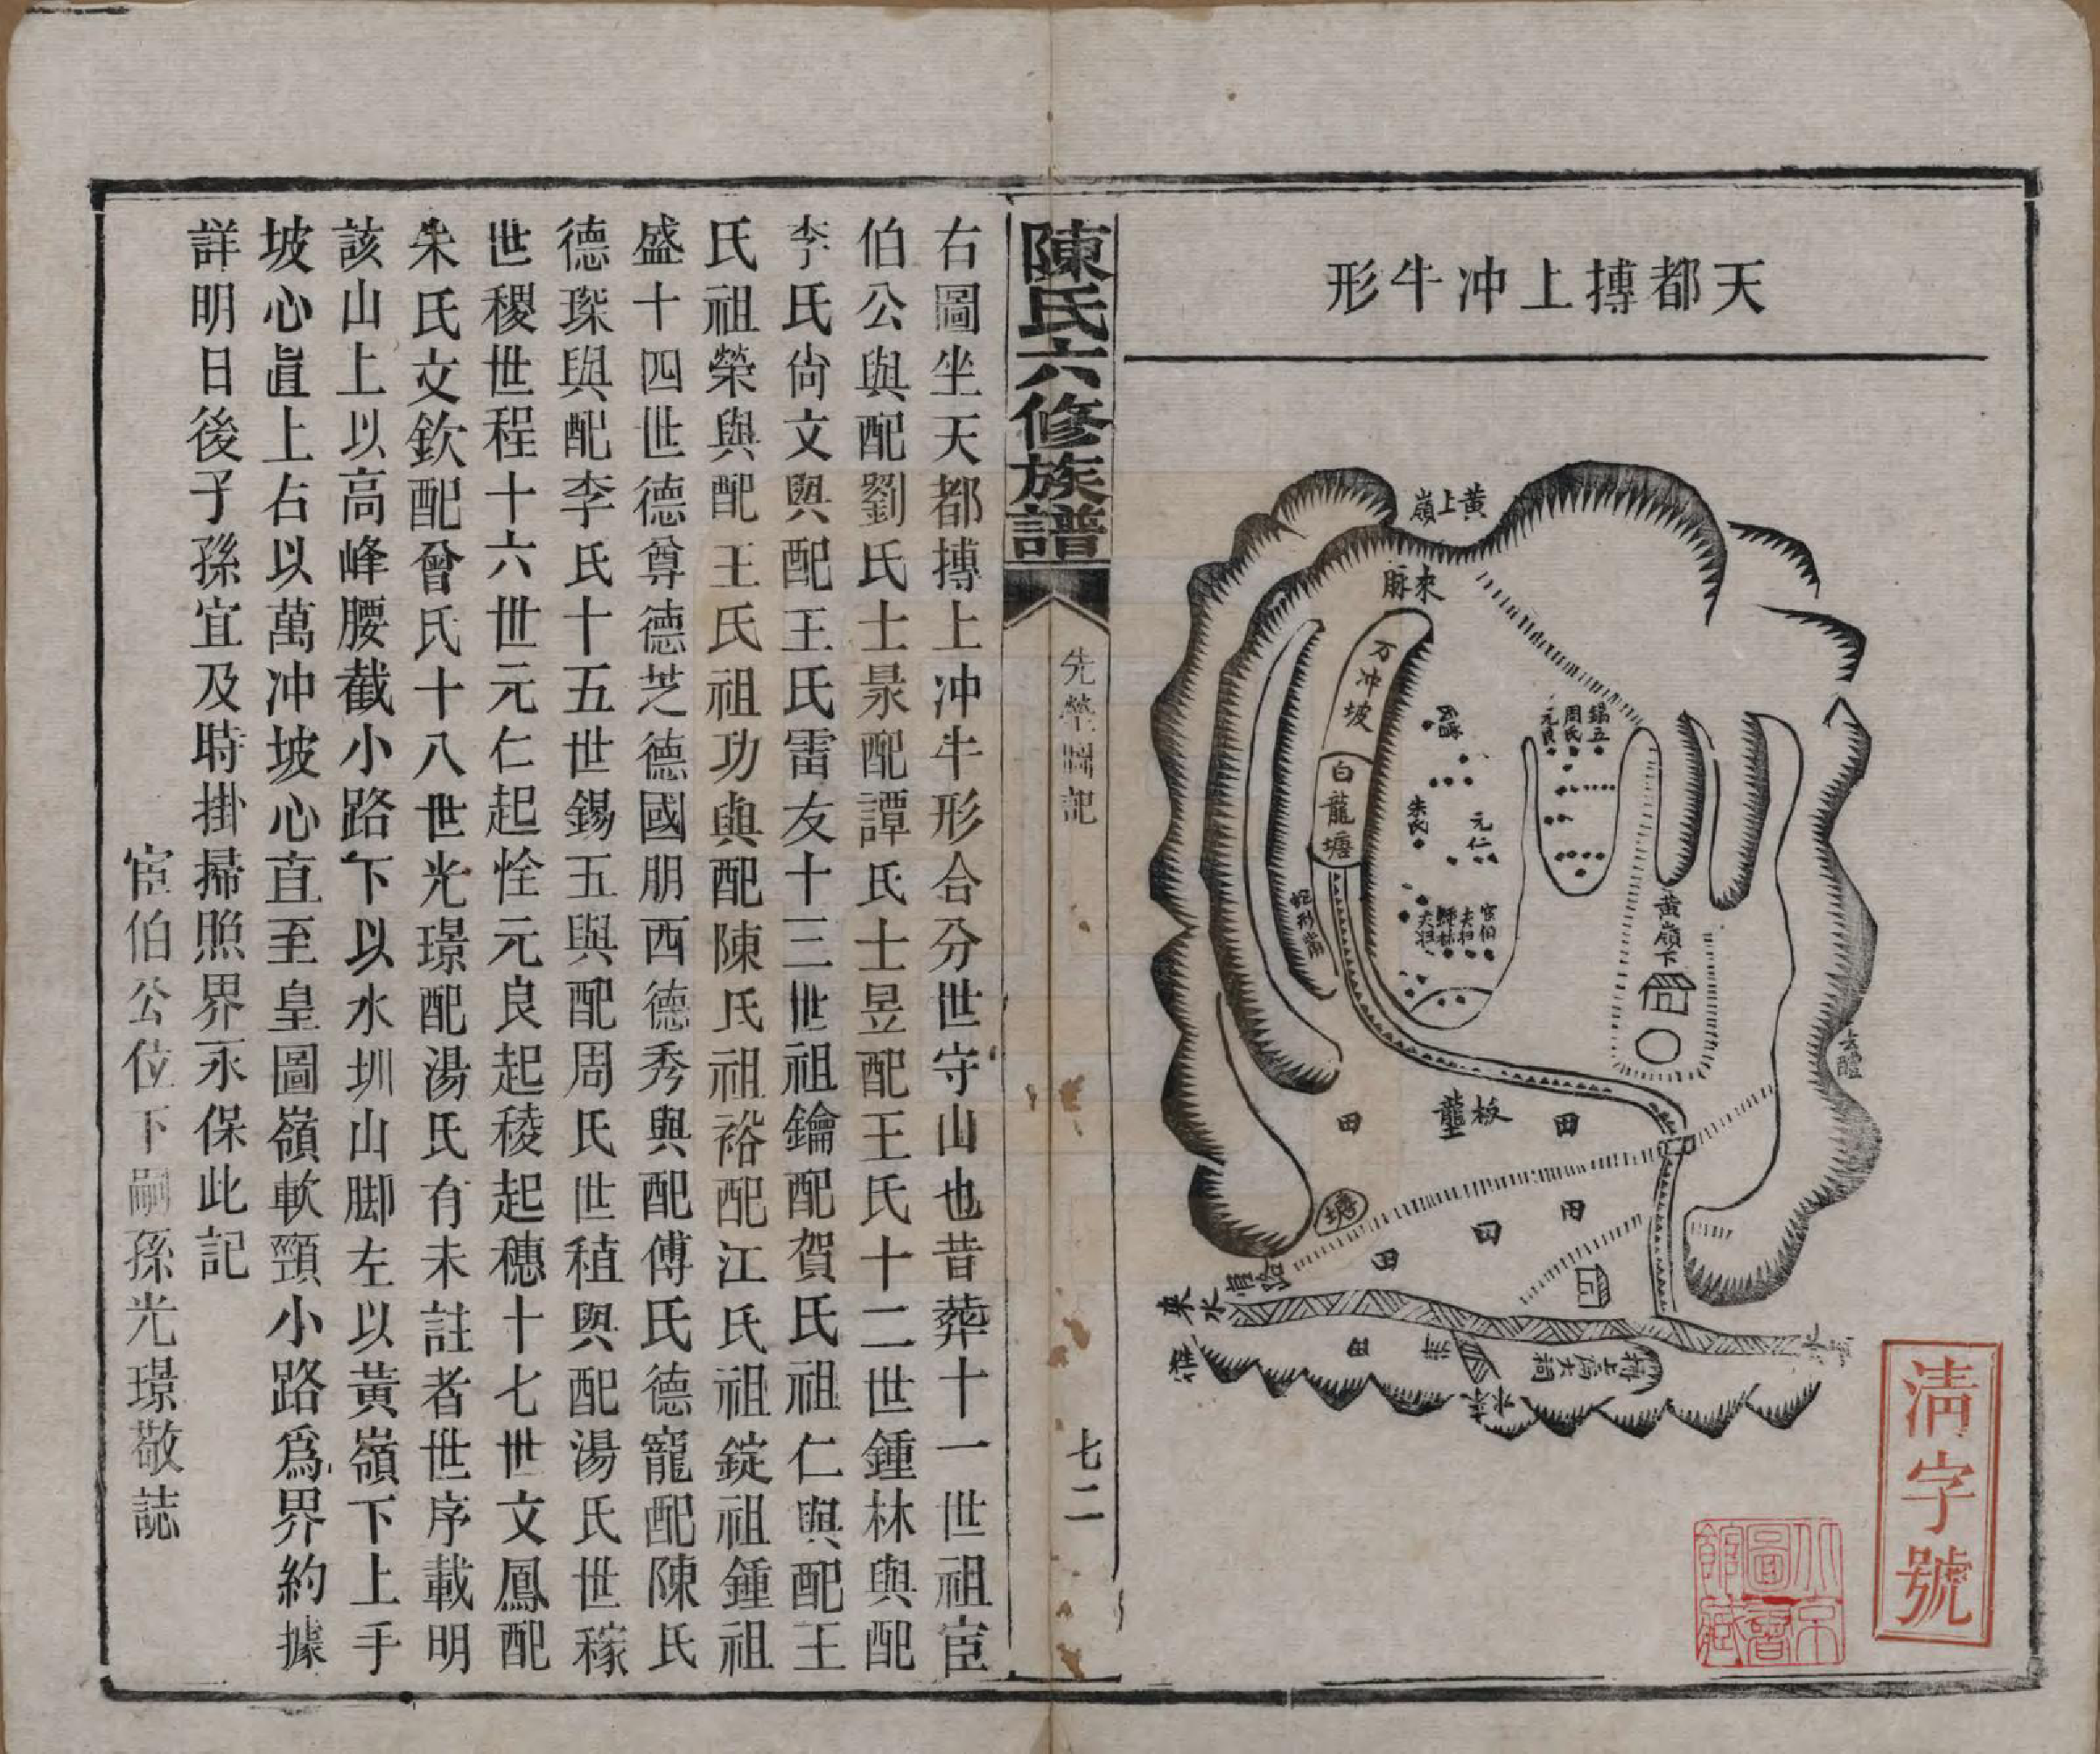 天都摶上冲牛形
黃上嶺
來脈
万冲坡
白龍塘
錫五
周氏
元良
朱氏
元仁
宦伯
夫招
鍾林
夫招
蛇形嘴
黃嶺下
去醴
板壟
田
田
田
田
田
塘
水來
田
清字號
北京圖書館藏
陳氏六修族譜
先塋圖記
七二
右圖坐天都摶上冲牛形合分世守山也昔葬十一世祖宦
伯公與配劉氏士㬎配譚氏士昱配王氏十二世鍾林與配
李氏尙文與配王氏雷友十三世祖鑰配賀氏祖仁與配王
氏祖榮與配王氏祖功與配陳氏祖裕配江氏祖錠祖鍾祖
盛十四世德尊德芝德國朋西德秀與配傅氏德寵配陳氏
德琛與配李氏十五世錫五與配周氏世稙與配湯氏世稼
世稷世程十六世元仁起恮元良起稜起穗十七世文鳳配
朱氏文欽配曾氏十八世光璟配湯氏有未註者世序載明
該山上以高峰腰截小路下以水圳山脚左以黃嶺下上手
坡心直上右以萬冲坡心直至皇圖嶺軟頸小路爲界約據
詳明日後子孫宜及時掛掃照界永保此記
宦伯公位下嗣孫光璟敬誌